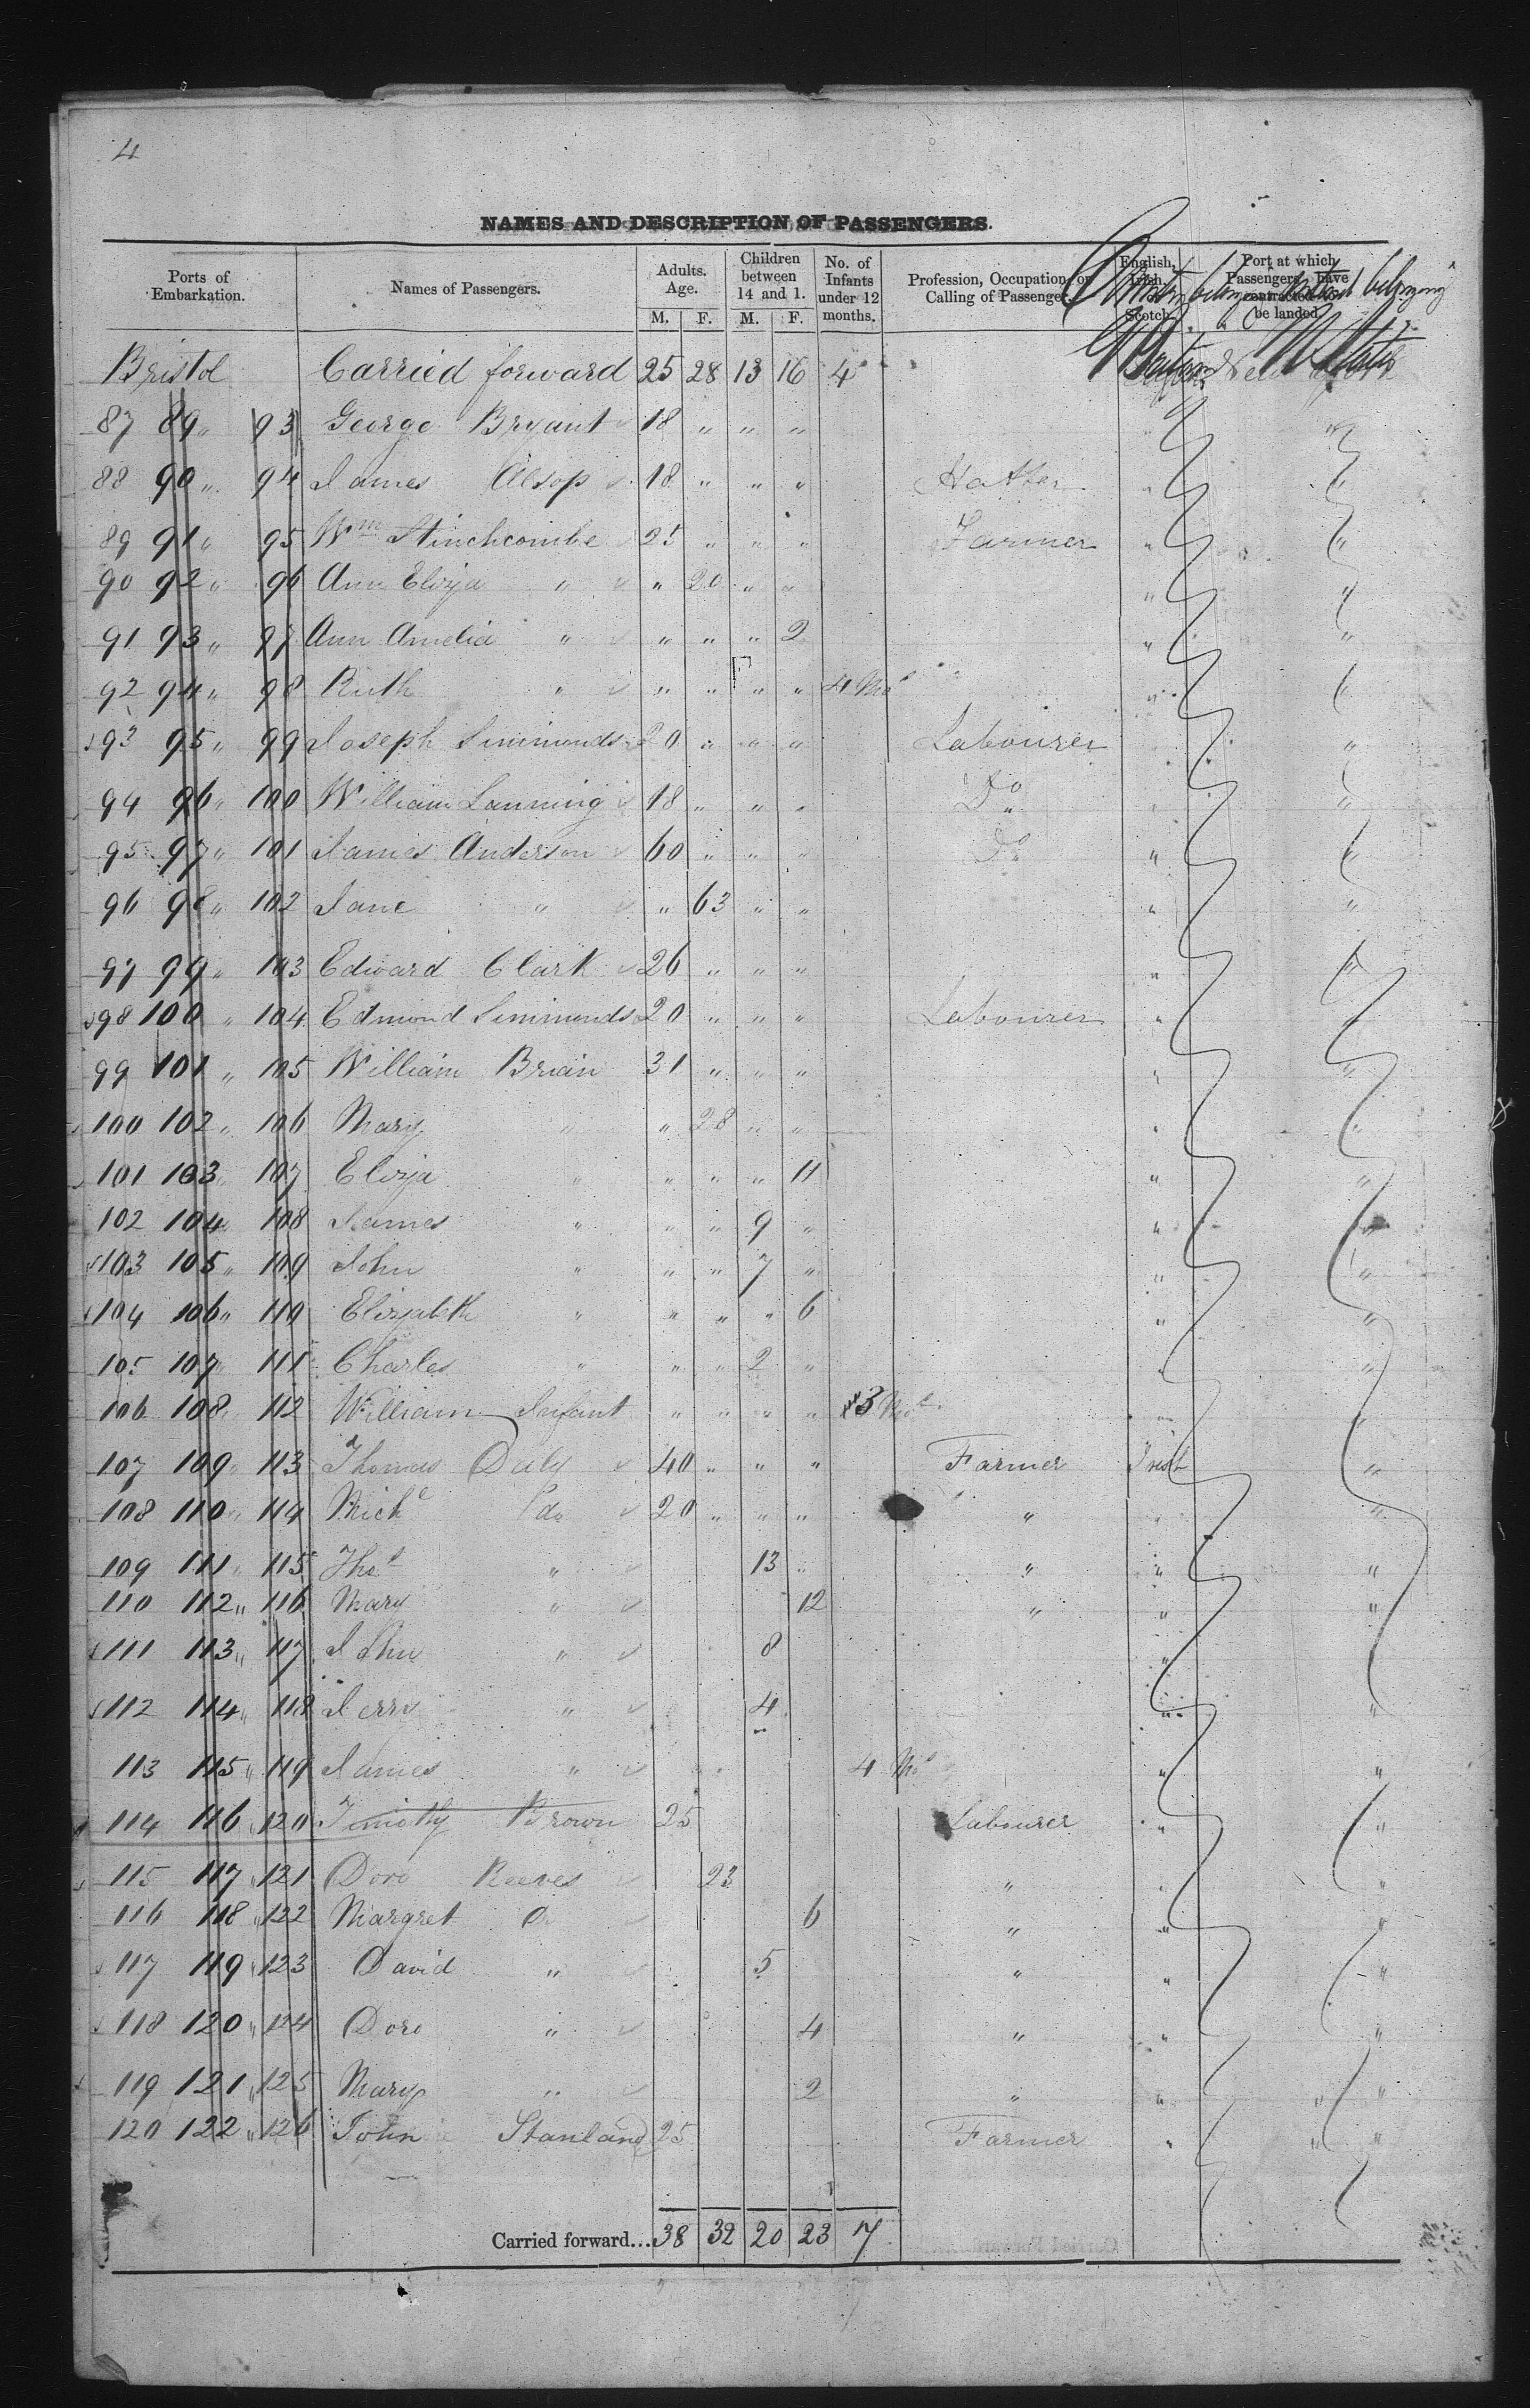 4
NAMES AND DESCRIPTION OF PASSENGERS.
Ports of Embarkation. Names of Passengers. Adults. Age. M. F. Children between 14 and 1. M. F. No. of Infants under 12 months. Profession, Occupation, or Calling of Passenger. English, Irish, or Scotch. Port at which Passengers have contracted to be landed.
Bristol Carried forward 25 28 13 16 4
87 89 " 93 George Bryant 18 " " " "
88 90 " 94 James Alsop 18 " " " Hatter " "
89 91 " 95 Wm Stinchcombe 25 " " " Farmer " "
90 92 " 96 Ann Eliza " " 20 " " " "
91 93 " 97 Ann Amelia " " " " 2 " "
92 94 " 98 Ruth " " " " " 4 Mos "
93 95 " 99 Joseph Simmonds 20 " " " Labourer "
94 96 " 100 William Lanning 18 " " " Do " "
95 97 " 101 James Anderson 60 " " " Do " "
96 98 " 102 Jane " " 63 " " " "
97 99 " 103 Edward Clark 26 " " " " "
98 100 " 104 Edmond Simmonds 20 " " " Labourer "
99 101 " 105 William Brian 31 " " " " "
100 102 " 106 Mary " " 28 " " " "
101 103 " 107 Eliza " " " " 11 " "
102 104 " 108 James " " " 9 " "
103 105 " 109 John " " " 7 " " "
104 106 " 110 Elizabeth " " " " 6 " "
105 107 " 111 Charles " " " 2 " " "
106 108 " 112 William Infant " " " " 3 Mos " "
107 109 " 113 Thomas Daly 40 " " " Farmer Irish "
108 110 " 114 Michl do 20 " " " " " "
109 111 " 115 Thos " 13 " " " "
110 112 " 116 Mary " 12 " " "
111 113 " 117 John " 8 "
112 114 " 118 Jerry " 4 " "
113 115 " 119 James " 4 Mos " "
114 116 " 120 Timothy Brown 25 Labourer " "
115 117 " 121 Doro Reeves 23 " " "
116 118 " 122 Margret Do 6 " " "
117 119 " 123 David " 5 " " "
118 120 " 124 Doro " 4 " " "
119 121 " 125 Mary " 2 " " "
120 122 " 126 John Stanland 25 Farmer " "
Carried forward... 38 32 20 23 7